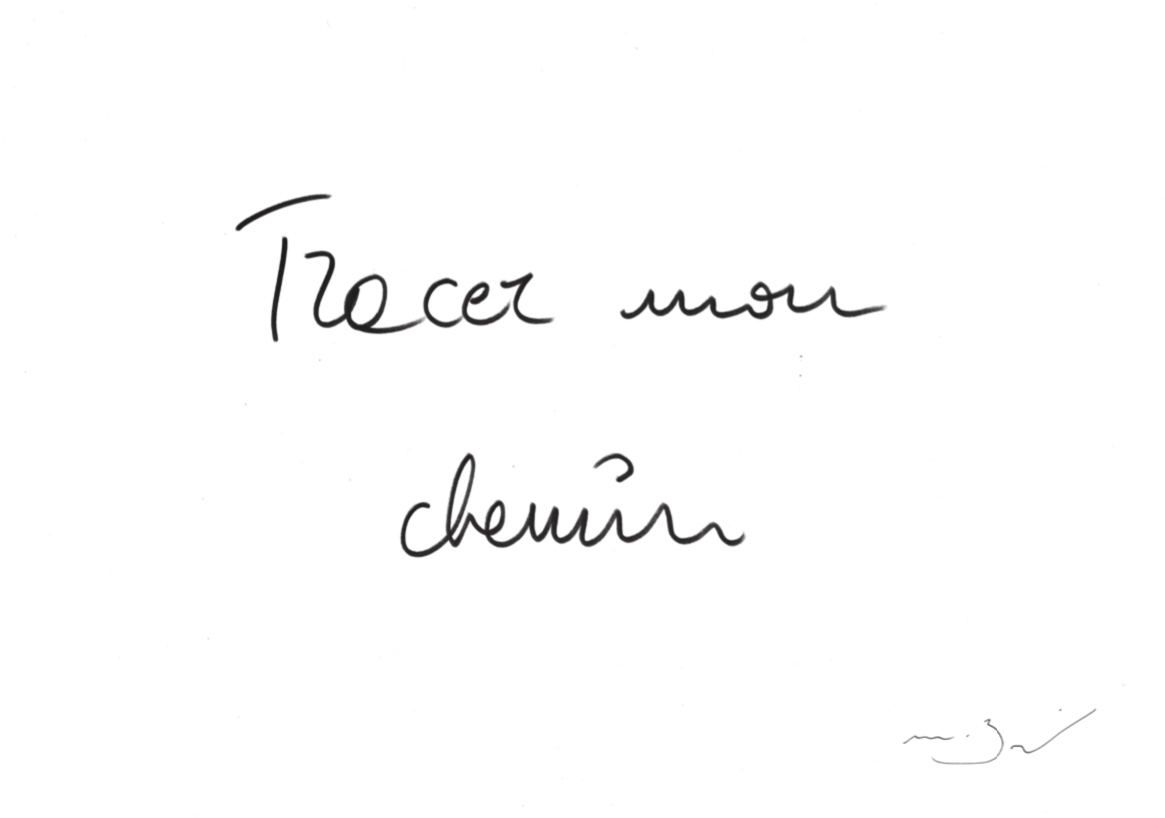 Tracer mon
chemin